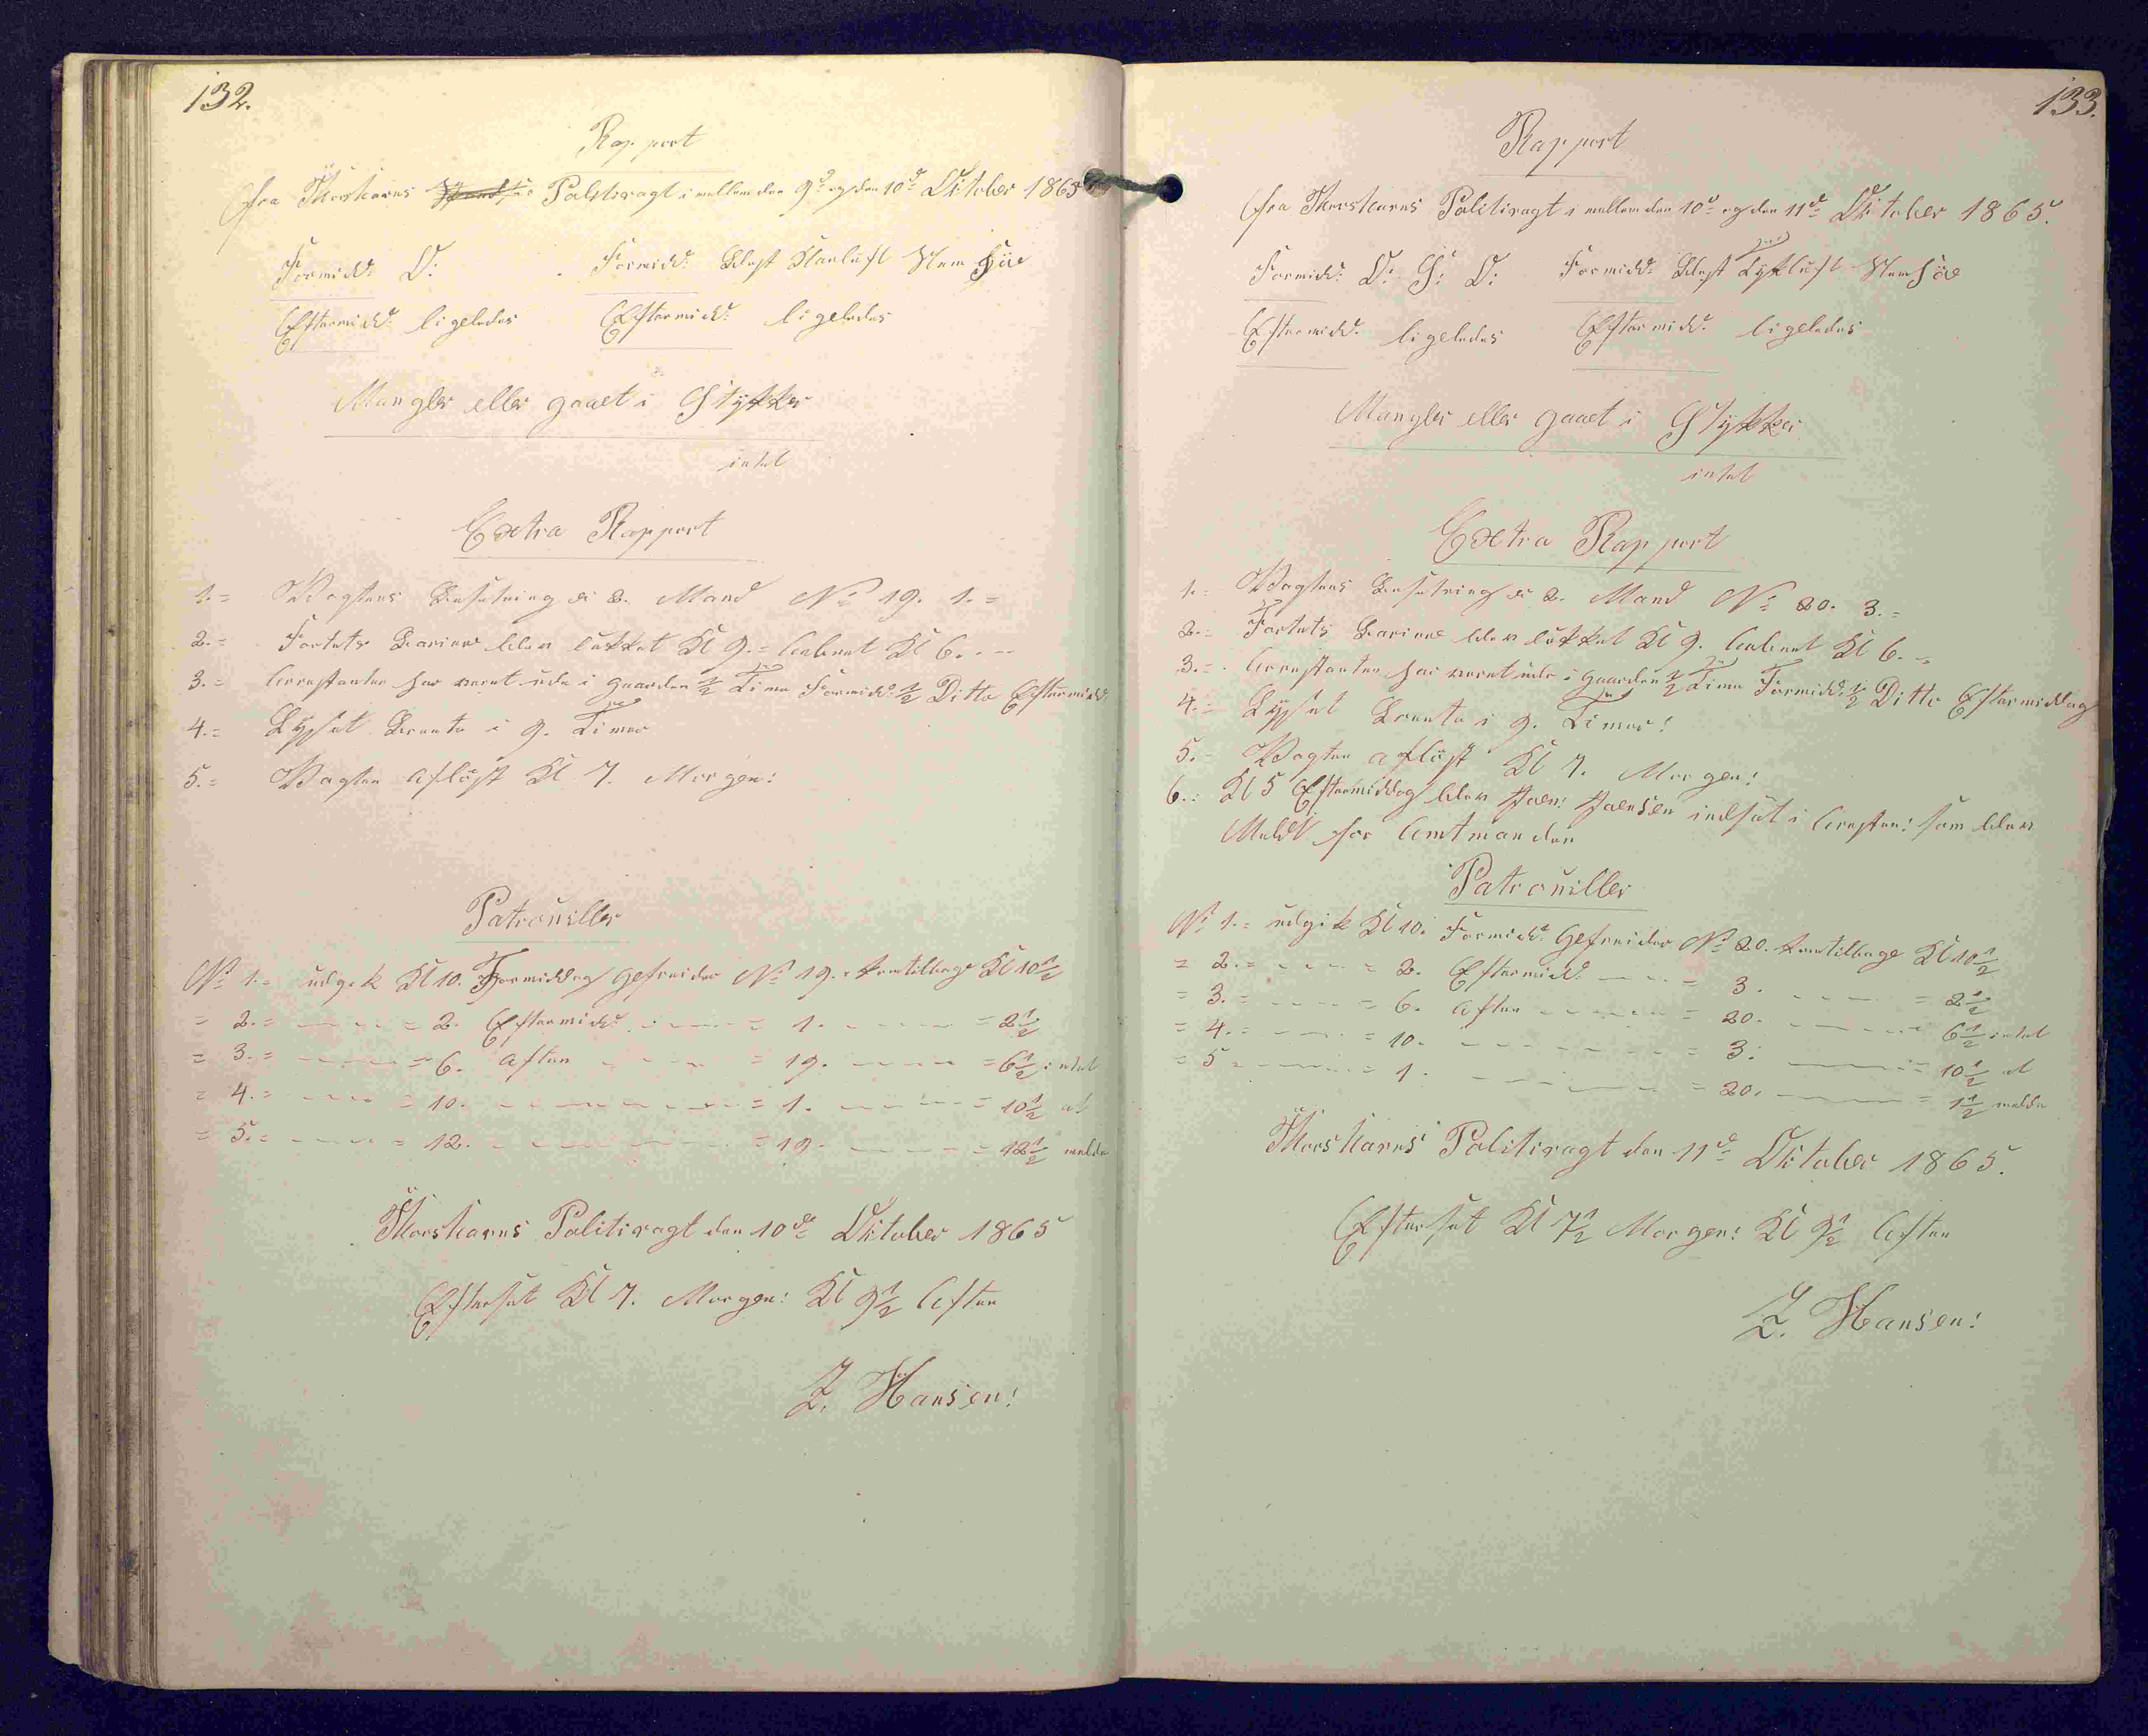 132.
Rapport
fra Thorshavns Politivagt imellem den 9d og den 10d Oktober 1865
Formidd: O: Formidd: Blæst Klarluft Slem Söe
Eftermidd: ligeledes Eftermidd: ligeledes
Mangler eller gaaet i Stykker
intet
Extra Rapport
1.= Vagtens Besætning er 2. Mand No 19. 1.=
2.= Fortets Bariere blev lukket Kl 9.= aabnet Kl 6.--
3.= Arrestanten har været ude i Gaarden 1/2 Time Formidd: 1/2 Ditto Eftermidd:
4.= Lyset Brente i 9. Timer
5.= Vagten aflöst Kl 7. Morgen:
Patrouiller
No 1.= udgik Kl 10. Formiddag Gefreider No 19. komtilbage Kl 10 1/2
= 2.= - - - = 2. Eftermidd: - - - = 1. - - - = 2 1/2
= 3.= - - - = 6. Aften - - - = 19. - - - = 6 1/2 intet
= 4.= - - - = 10. - - - = 1. - - - = 10 1/2 at
= 5.= - - - = 12. - - - = 19. - - - = 12 1/2 melde
Thorshavns Politivagt den 10de Oktober 1865
Efterset Kl 7. Morgen: Kl 9 1/2 Aften
Z. Hansen:
133.
Rapport
fra Thorshavns Politivagt imellem den 10d og den 11d Oktober 1865.
Formidd: O: S: O: Formidd: Blæst Tykluft Slem Söe
Eftermidd: ligeledes Eftermidd: ligeledes
Mangler eller gaaet i Stykker
intet
Extra Rapport
1.= Vagtens Besætning er 2. Mand No 20. 3.=
2.= Fortets Bariere blev lukket Kl 9. aabnet Kl 6.=
3.= Arrestanten har været ude i Gaarden 1/2 Time Formidd: 1/2 Ditto Eftermiddag
4.= Lyset Brente i 9. Timer:
5.= Vagten aflöst Kl 7. Morgen:
6.: Kl 5 Eftermiddag blev Joen: Joensen indsat i Aresten: som blev
Meldt for Amtmanden
Patrouiller
No 1.= udgik Kl 10. Formidd: Gefreider No 20. komtilbage Kl 10 1/2
= 2.= - - - = 2. Eftermidd: - - - = 3. - - - = 2 1/2
= 3.= - - - = 6. Aften - - - = 20. - - - 6 1/2 intet
= 4.= - - - = 10. - - - = 3. - - - = 10 1/2 at
= 5 - - - = 1. - - - = 20. - - - = 1 1/2 melde
Thorshavns Politivagt den 11de Oktober 1865.
Efterset Kl 7 1/2 Morgen: Kl 9 1/2 Aften
Z. Hansen: